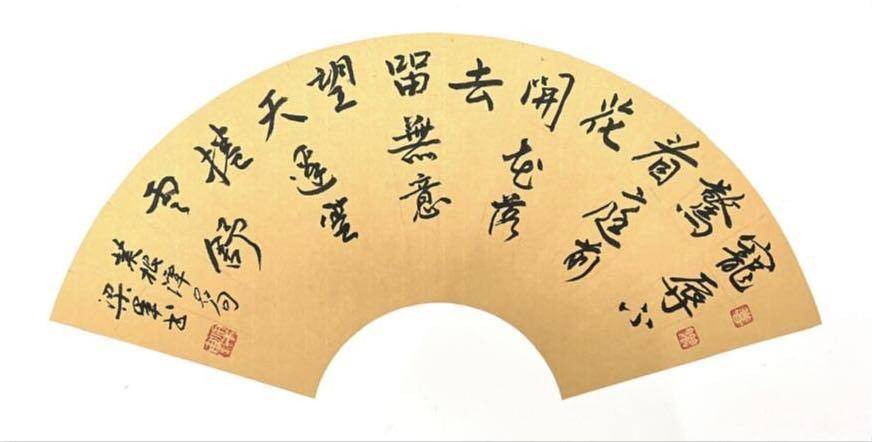 寵辱不
驚
看庭前
花
開花落
去
留無意
望
天邊雲
捲
雲舒
菜根譚句
梁書